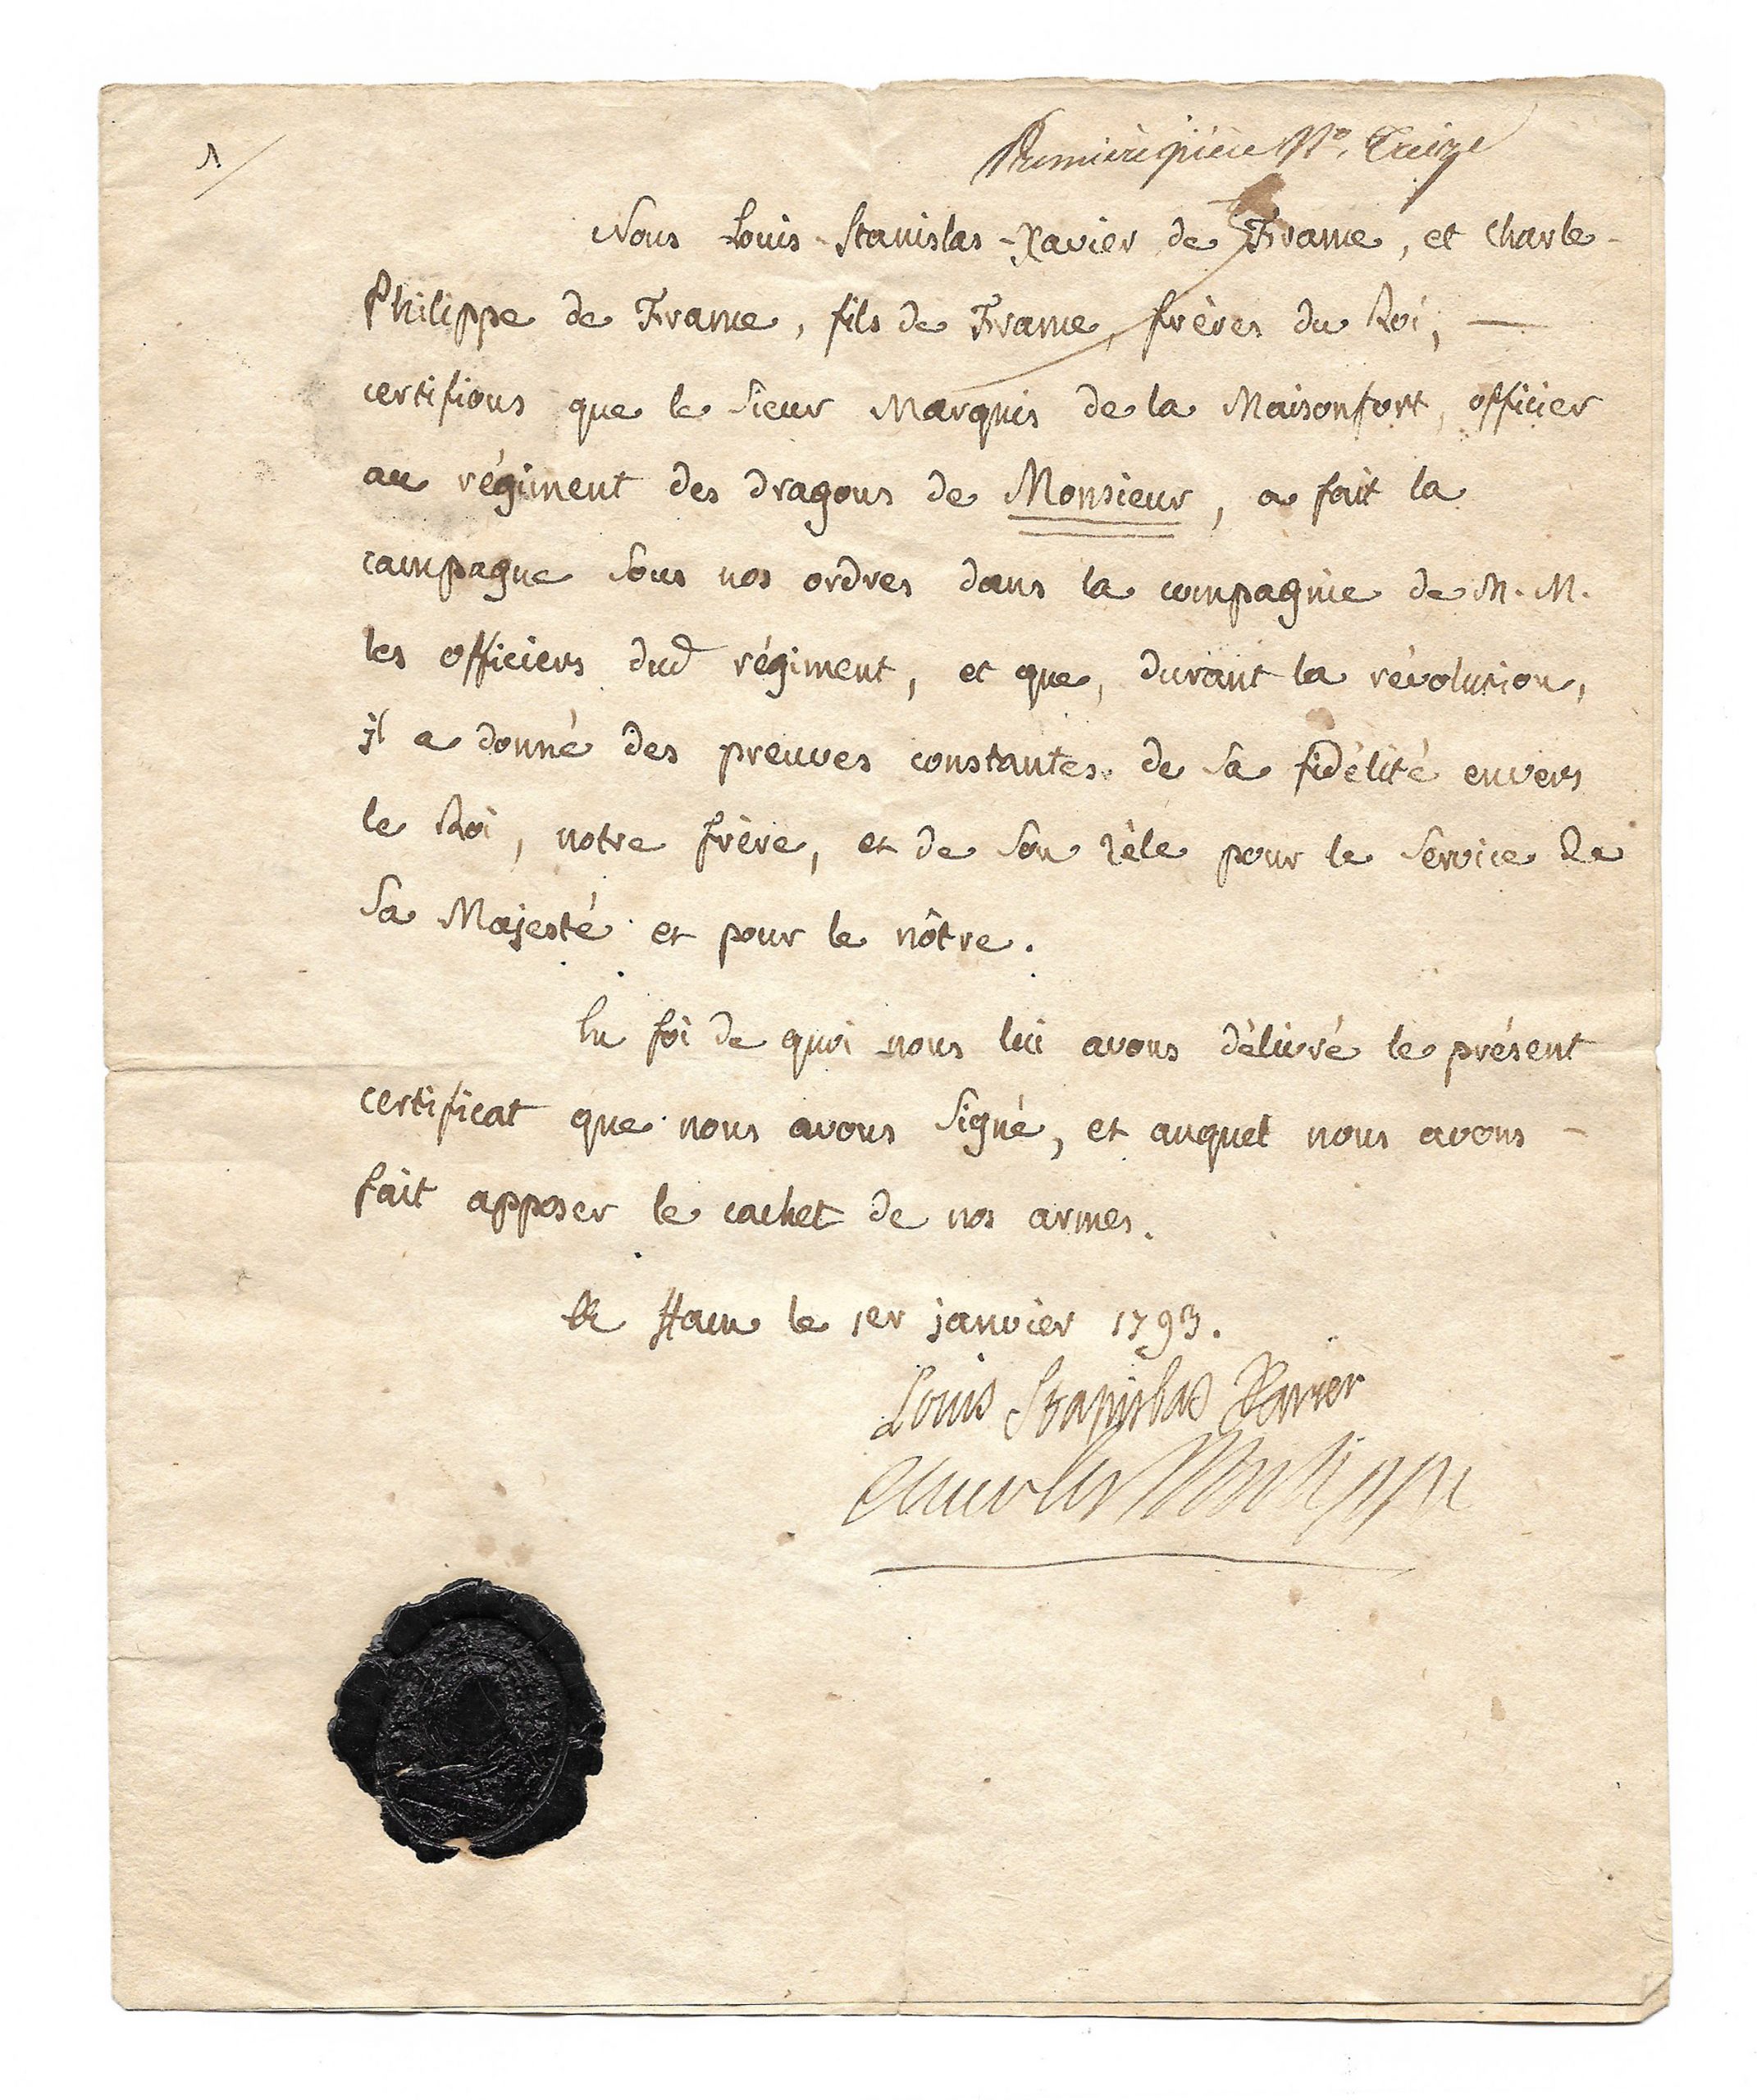 1/
Première pièce N.° Treize
Nous Louis-Stanislas-Xavier de France, et Charle-
Philippe de France, fils de France, frères du Roi, —
certifions que le Sieur Marquis de la Maisonfort, officier
au régiment des dragons de Monsieur, a fait la
campagne sous nos ordres dans la compagnie de M. M.
les officiers dud régiment, et que, durant la révolution,
il a donné des preuves constantes de sa fidélité envers
le Roi, notre frère, et de son zèle pour le service de
Sa Majesté et pour le nôtre.
En foi de quoi nous lui avons délivré le présent
certificat que nous avons signé, et auquel nous avons -
fait apposer le cachet de nos armes.
A Ham le 1er janvier 1793.
Louis Stanislas Xavier
Charles Philippe